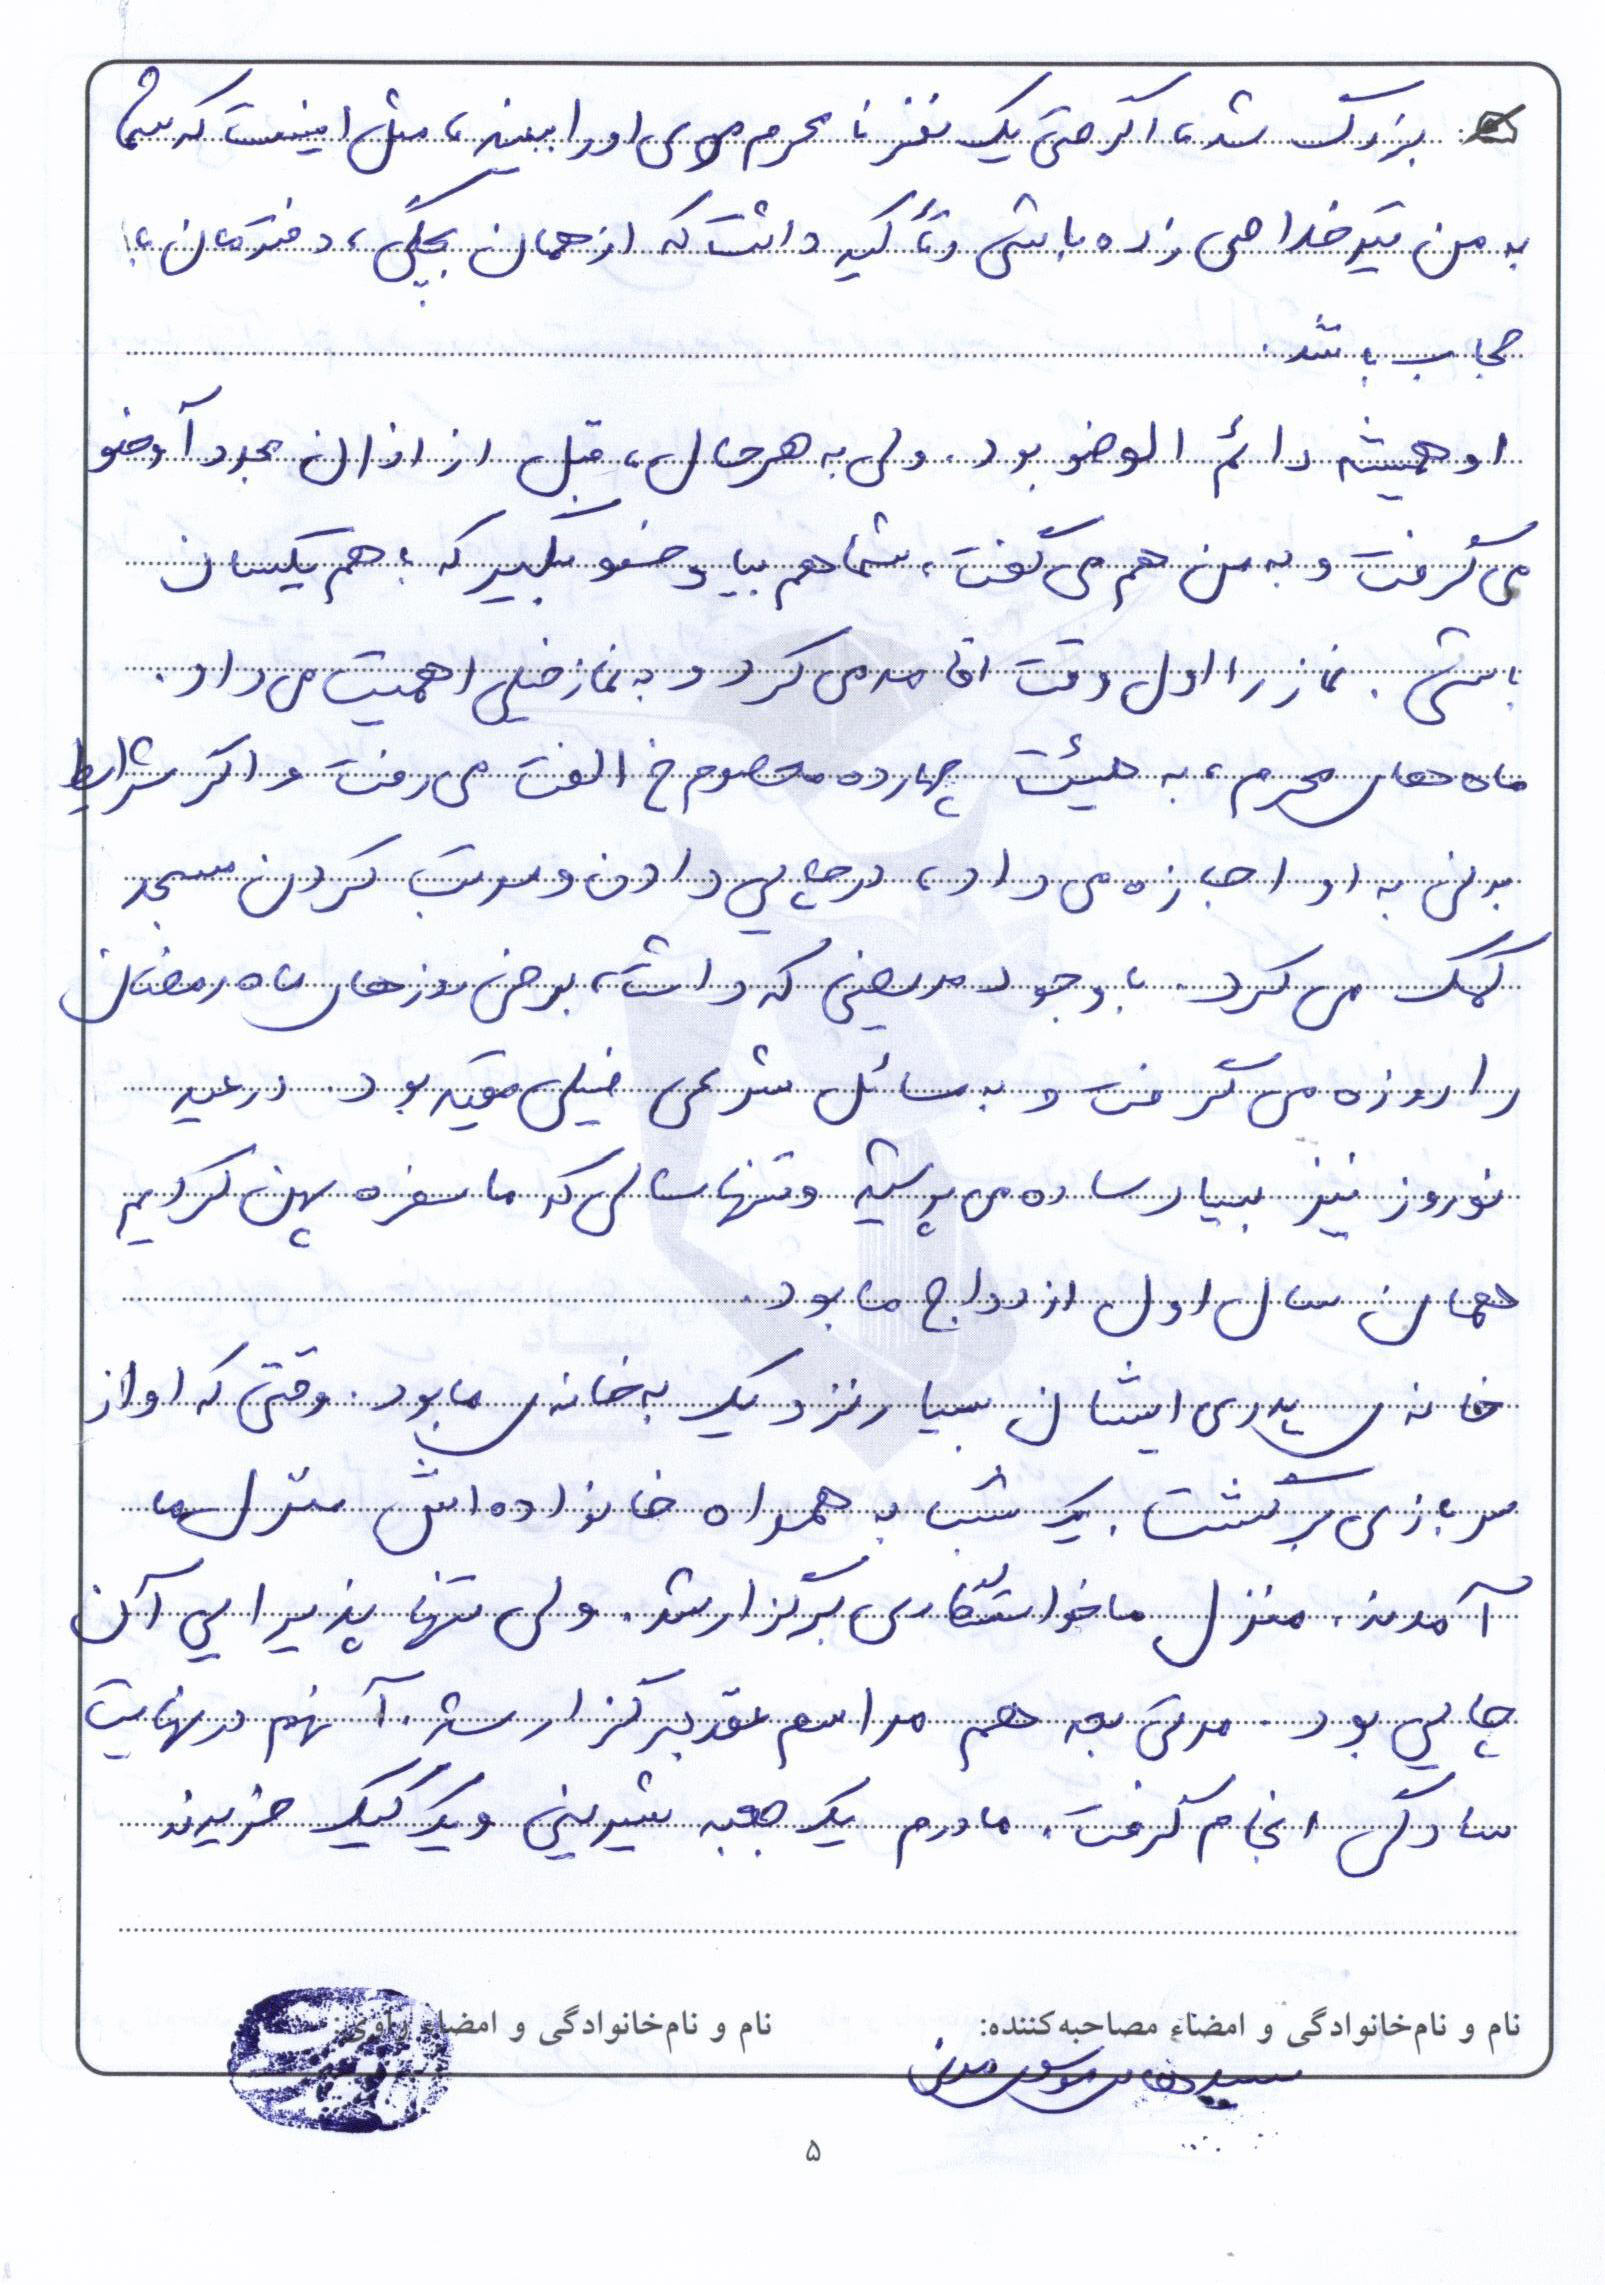 بزرگ شد، اگر حتی یک نفر نامحرم موی او را ببیند، مثل اینست که شما
به من تیر خلاصی زده باشی و تأکید داشت که از همان بچگی، دخترمان با
حجاب باشد.
او همیشه دائم الوضو بود. ولی به هر حال، قبل از اذان مجدداً وضو
می گرفت و به من هم می گفت، شما هم بیا وضو بگیر که با هم یکسان
باشیم. نماز را اول وقت اقامه می کرد و به نماز خیلی اهمیت می داد.
ماه های محرم، به هیئت چهارده معصوم خ الفت می رفت و اگر شرایط
بدنی به او اجازه می داد، در چایی دادن و مرتب کردن مسجد
کمک می کرد. با وجود مریضی که داشت، برخی روزهای ماه رمضان
را روزه می گرفت و به مسائل شرعی خیلی مقید بود. در عید
نوروز نیز بسیار ساده می پوشید و تنها سالی که ما سفره پهن کردیم
همان سال اول ازدواج ما بود.
خانه ی پدری ایشان بسیار نزدیک به خانه ی ما بود. وقتی که او از
سربازی برگشت. یک شب به همراه خانواده اش منزل ما
آمدند. منزل ما خواستگاری برگزار شد. ولی تنها پذیرایی آن
چایی بود. مدتی بعد هم مراسم عقد برگزار شد. آنهم در نهایت
سادگی انجام گرفت. مادرم یک جعبه شیرینی و یک کیک خریدند
نام و نام‌خانوادگی و امضاء مصاحبه‌کننده: نام و نام‌خانوادگی و امضاء راوی:
۵